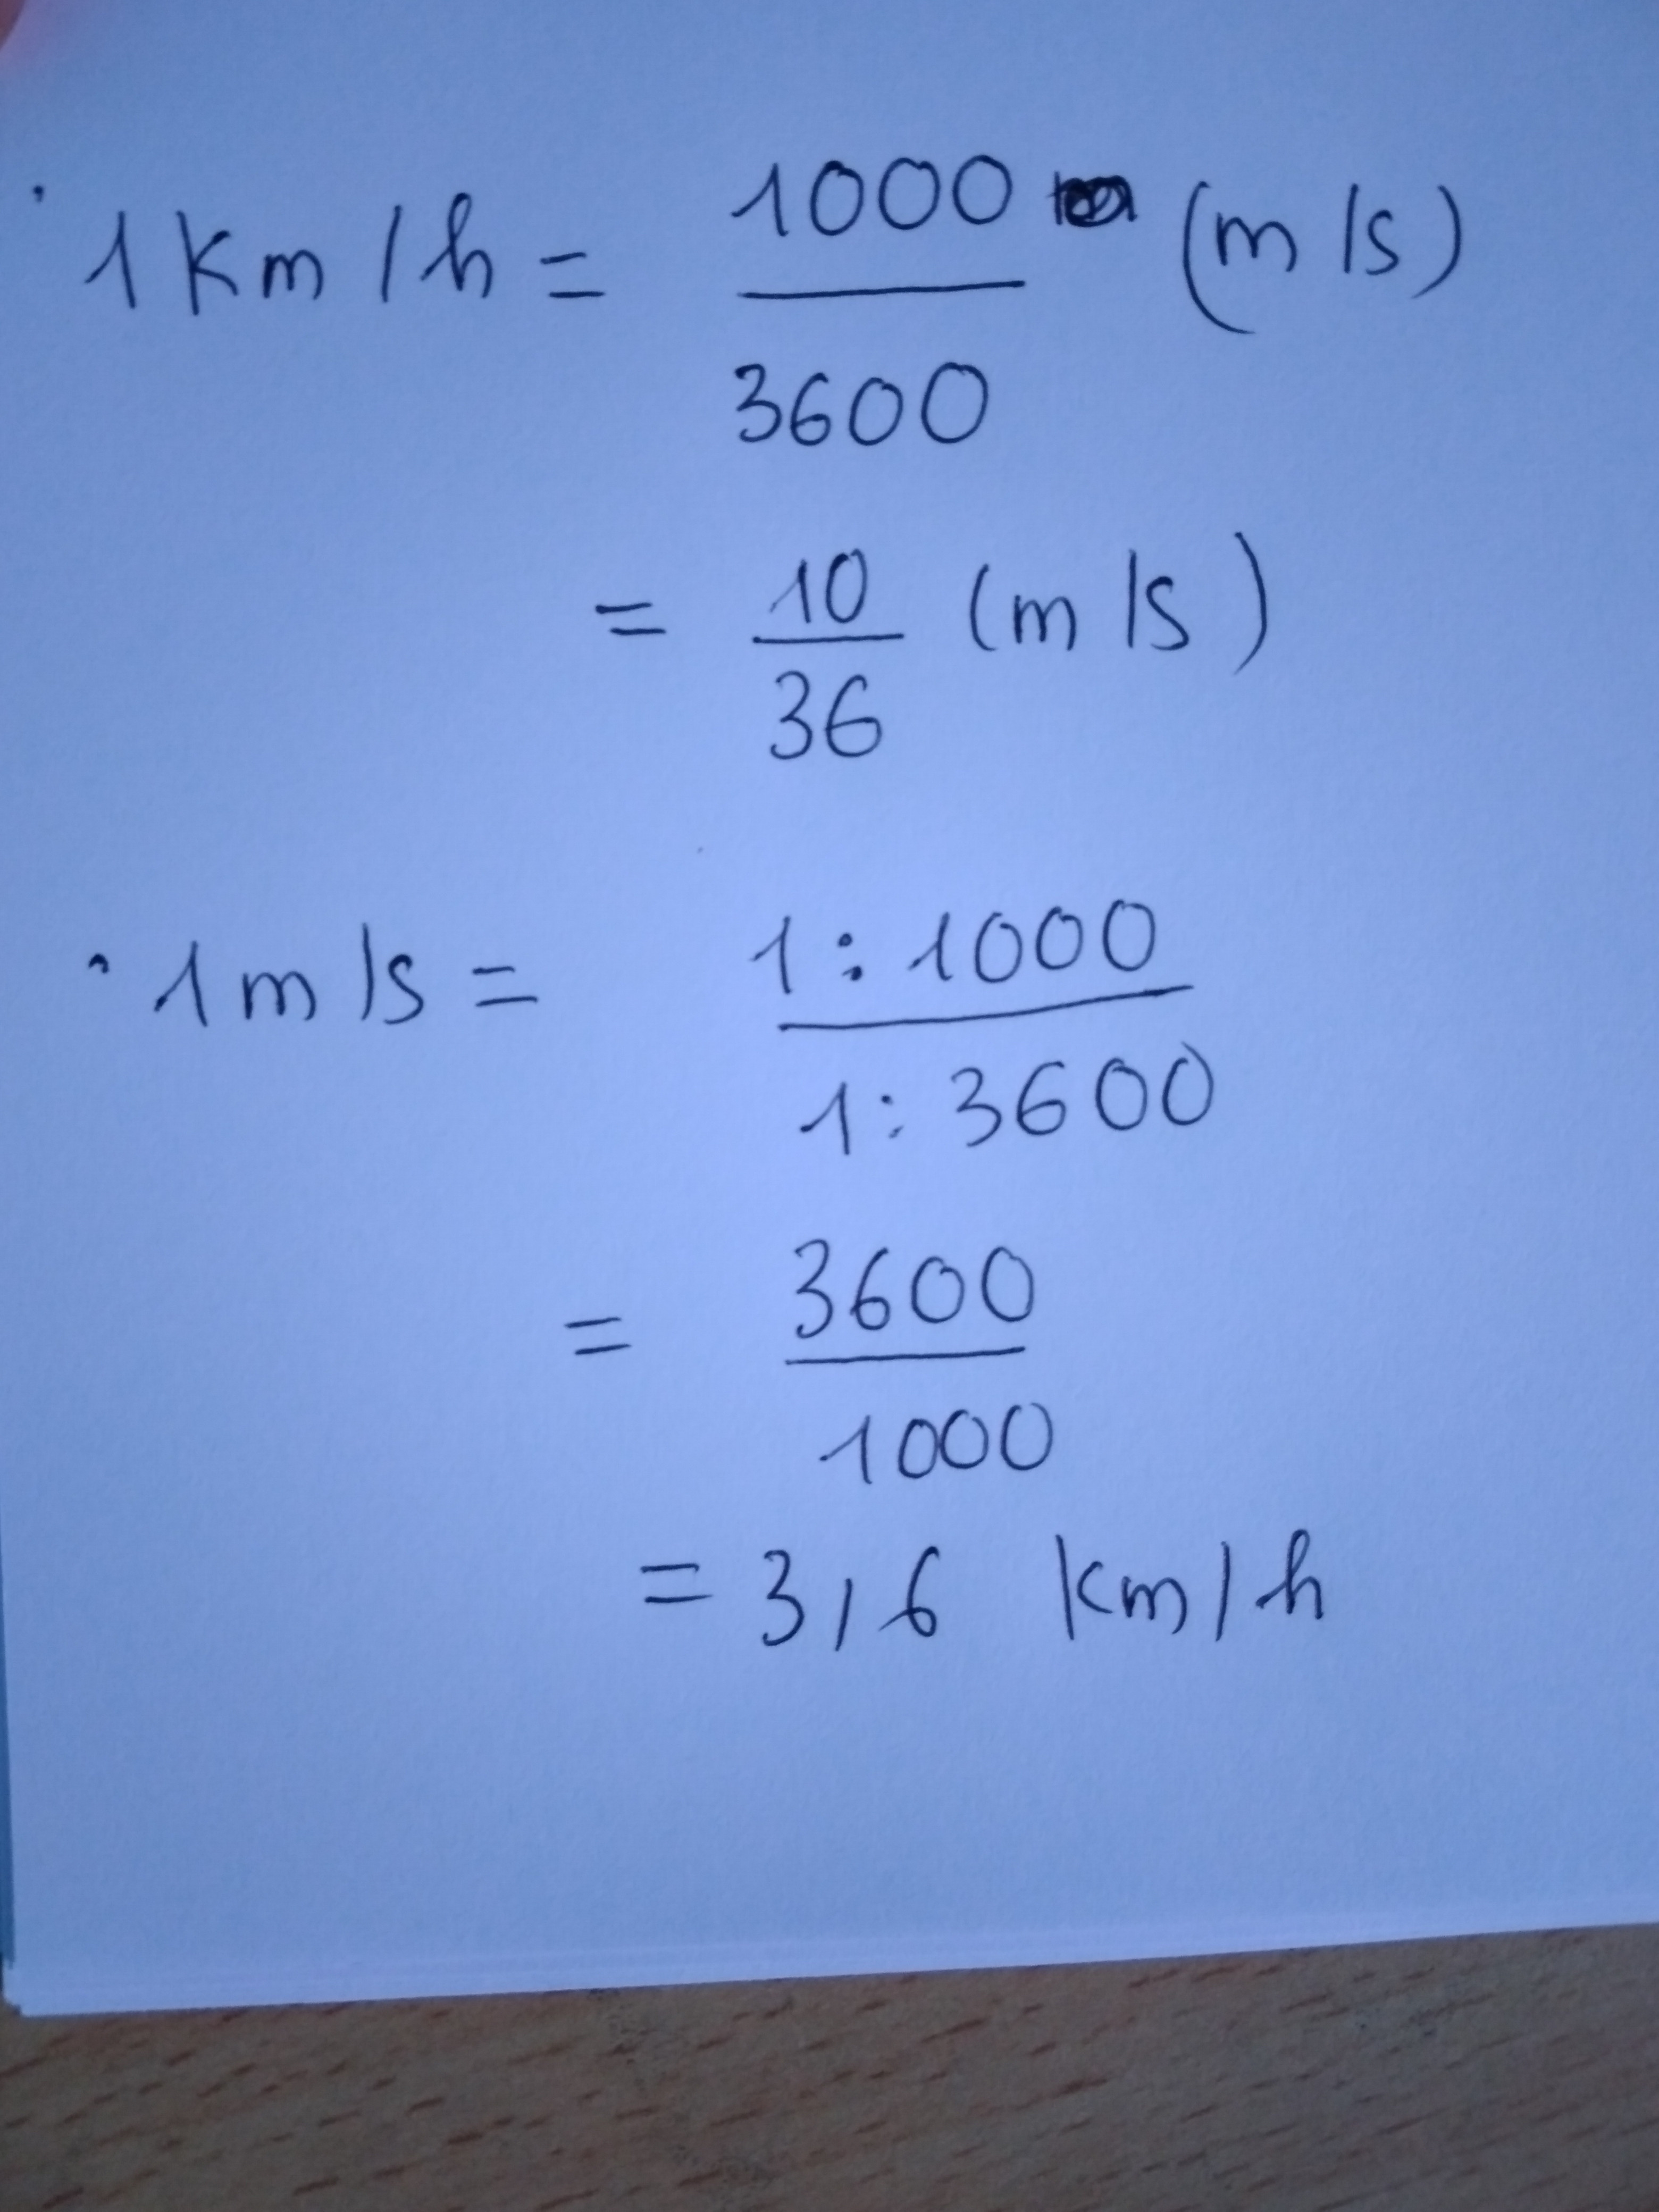 1 km/h = 1000/3600 (m/s)
= 10/36 (m/s)
1 m/s = 1:1000/1:3600
= 3600/1000
= 3,6 km/h